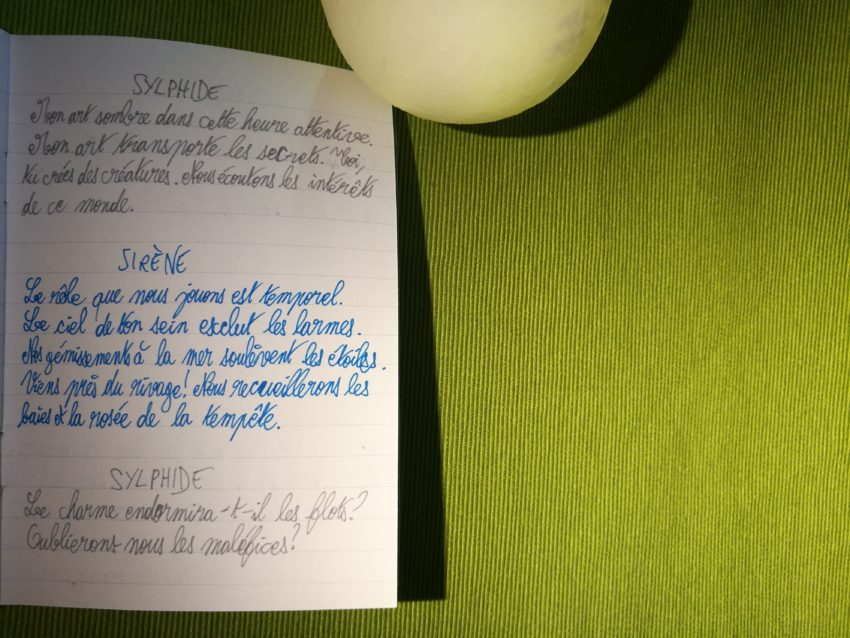 SYLPHIDE
Mon art sombre dans cette heure attentive.
Mon art transporte les secrets. Toi,
tu crées des créatures. Nous écoutons les intérêts
de ce monde.
SIRÈNE
Le rôle que nous jouons est temporel.
Le ciel de ton sein exclut les larmes.
Nos gémissements à la mer soulèvent les étoiles.
Viens près du rivage! Nous recueillerons les
baies et la rosée de la tempête.
SYLPHIDE
Le charme endormira-t-il les flots?
Oublierons nous les maléfices?